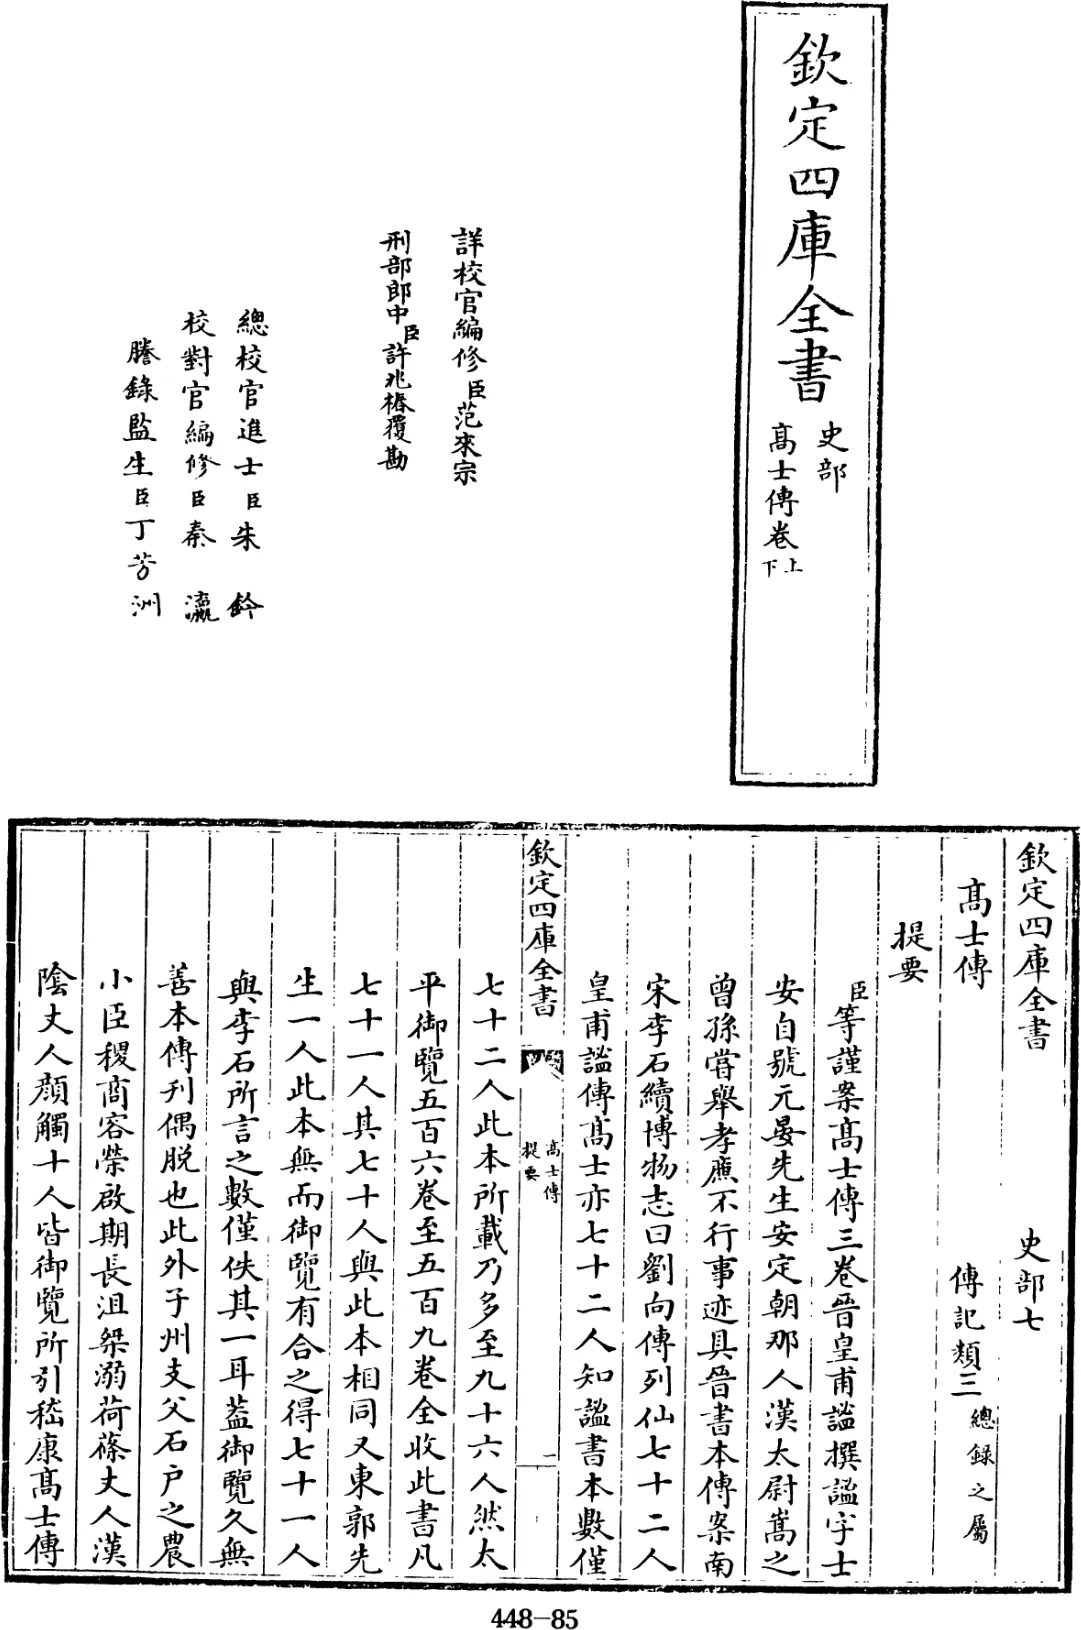 欽定四庫全書
史部
髙士傳卷上下
詳校官編修臣范來宗
刑部郎中臣許兆椿覆勘
總校官進士臣朱鈐
校對官編修臣秦瀛
謄錄監生臣丁芳洲
欽定四庫全書 史部七
髙士傳 傳記類三總錄之屬
提要
臣等謹案髙士傳三卷晉皇甫謐撰謐字士
安自號元晏先生安定朝那人漢太尉嵩之
曾孫嘗舉孝廉不行事迹具晉書本傳案南
宋李石續博物志曰劉向傳列仙七十二人
皇甫謐傳髙士亦七十二人知謐書本數僅
欽定四庫全書
髙士傳
提要
一
七十二人此本所載乃多至九十六人然太
平御覽五百六卷至五百九卷全收此書凡
七十一人其七十人與此本相同又東郭先
生一人此本無而御覽有合之得七十一人
與李石所言之數僅佚其一耳葢御覽久無
善本傳刋偶脱也此外子州支父石户之農
小臣稷商容榮啟期長沮桀溺荷蓧丈人漢
陰丈人顔觸十人皆御覽所引嵇康髙士傳
448-85